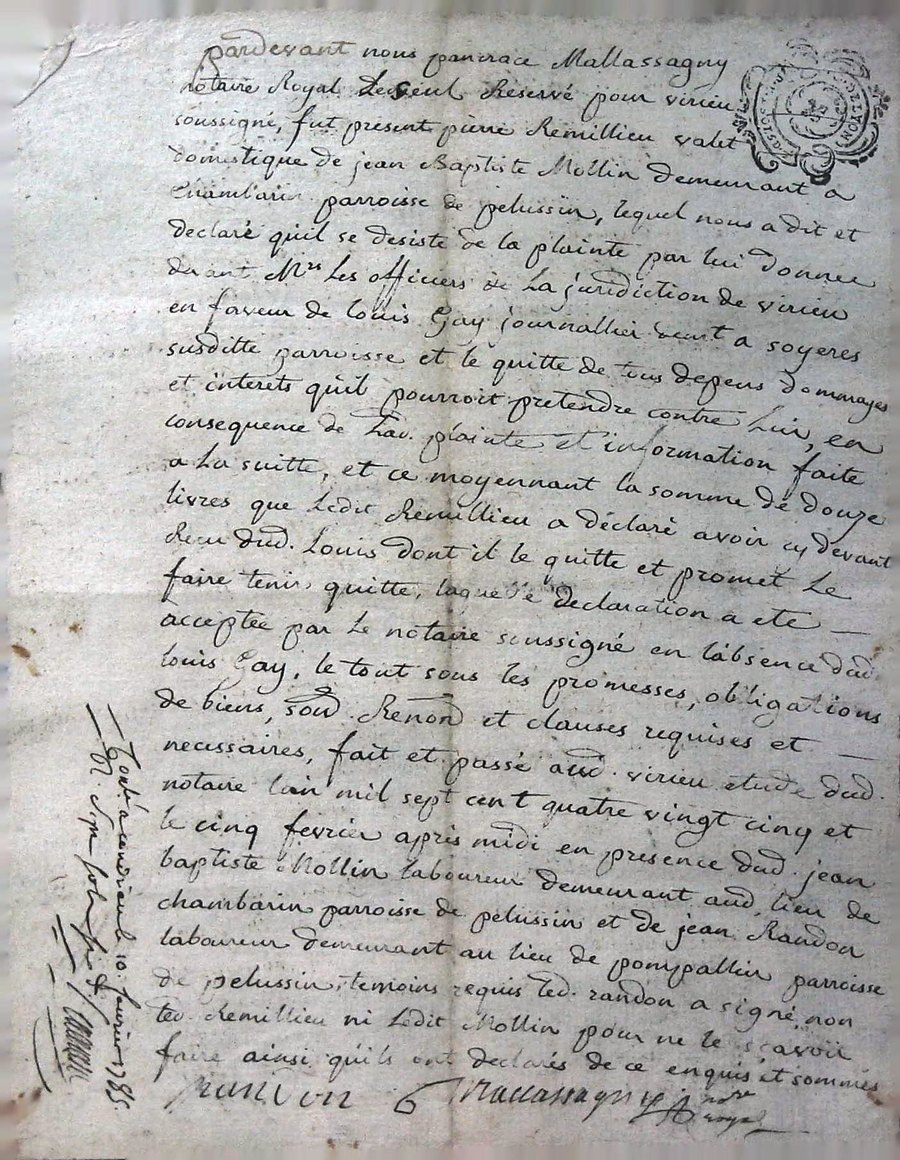 pardevant nous panrace Mallassagny
notaire Royal Le seul Reservé pour virieu
soussigné, fut present pierre Remillieu valet
domestique de jean Baptiste Mollin demeurant a
Chambarin parroisse de pelussin, lequel nous a dit et
declaré qu'il se desiste de la plainte par lui donnee
devant Mrs Les officiers de La juridiction de virieu
en faveur de louis Gay journallier a soyeres
susditte parroisse et le quitte de tous depens dommages
et interets qu'il pourroit pretendre contre Lui, en
consequence de Lad. plainte et information faite
a La suitte, et ce moyennant la somme de douze
livres que Ledit Remillieu a déclaré avoir cy devant
Recu dud. Louis dont il le quitte et promet Le
faire tenir quitte, laquelle declaration a ete
acceptée par Le notaire soussigné en l'absence dud.
louis Gay, le tout sous les promesses, obligations
de biens, soud. Renond et clauses requises et
necessaires, fait et passé aud. virieu etude dud.
notaire l'an mil sept cent quatre vingt cinq et
le cinq fevrier apris midi en presence dud. jean
baptiste Mollin laboureur demeurant aud. lieu de
chambarin parroisse de pelussin et de jean Randon
laboureur demeurant au lieu de pompallin parroisse
de pelussin, temoins requis led. randon a signé, non
led. Remillieu ni Ledit Mollin pour ne le sçavoir
faire ainsi qu'ils ont declarés de ce enquis et sommés
randon Mallassagny nore
royal
Cont. a condrieu le 10. fevrier 1785.